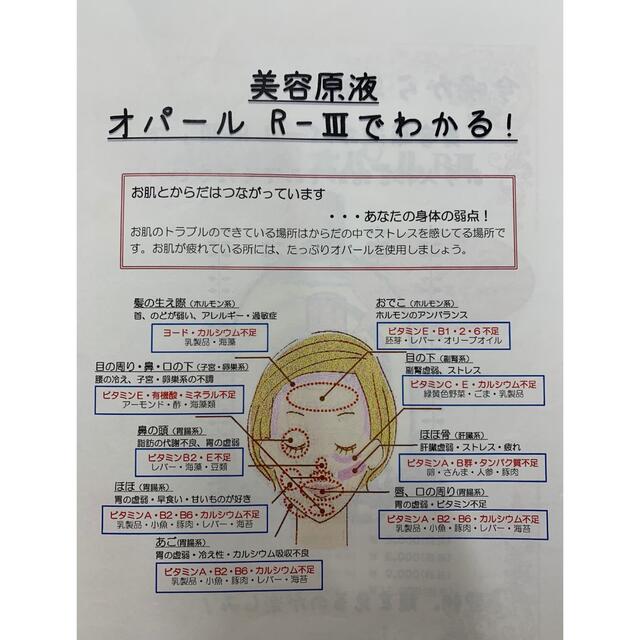 美容原液
オパール R-Ⅲでわかる!
お肌とからだはつながっています
・・・あなたの身体の弱点!
お肌のトラブルのできている場所はからだの中でストレスを感じてる場所で
す。お肌が疲れている所には、たっぷりオパールを使用しましょう。
髪の生え際（ホルモン系）
首、のどが弱い、アレルギー・過敏症
ヨード・カルシウム不足
乳製品・海藻
おでこ（ホルモン系）
ホルモンのアンバランス
ビタミンE・B1・2・6不足
胚芽・レバー・オリーブオイル
目の周り・鼻・口の下（子宮・卵巣系）
腰の冷え、子宮・卵巣系の不調
ビタミンE・有機酸・ミネラル不足
アーモンド・酢・海藻類
目の下（副腎系）
副腎虚弱、ストレス
ビタミンC・E・カルシウム不足
緑黄色野菜・ごま・乳製品
鼻の頭（胃腸系）
脂肪の代謝不良、胃の虚弱
ビタミンB2・E不足
レバー・海藻・豆類
ほほ骨（肝臓系）
肝臓虚弱・ストレス・疲れ
ビタミンA・B群・タンパク質不足
卵・さんま・人参・豚肉
ほほ（胃腸系）
胃の虚弱・早食い・甘いものが好き
ビタミンA・B2・B6・カルシウム不足
乳製品・小魚・豚肉・レバー・海苔
唇、口の周り（胃腸系）
胃の虚弱・ビタミン不足
ビタミンA・B2・B6・カルシウム不足
乳製品・小魚・豚肉・レバー・海苔
あご（胃腸系）
胃の虚弱・冷え性・カルシウム吸収不良
ビタミンA・B2・B6・カルシウム不足
乳製品・小魚・豚肉・レバー・海苔